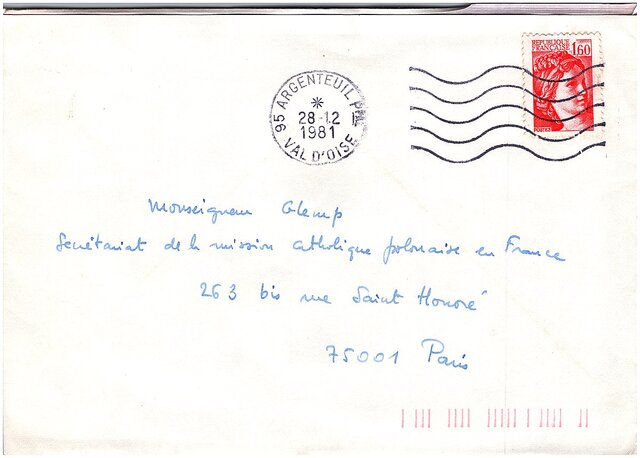 REPUBLIQUE
FRANÇAISE 1,60
POSTES
95 ARGENTEUIL PPAL
28-12
1981
VAL D'OISE
Monseigneur Glemp
Secrétariat de la mission catholique polonaise en France
263 bis rue Saint Honoré
75001 Paris